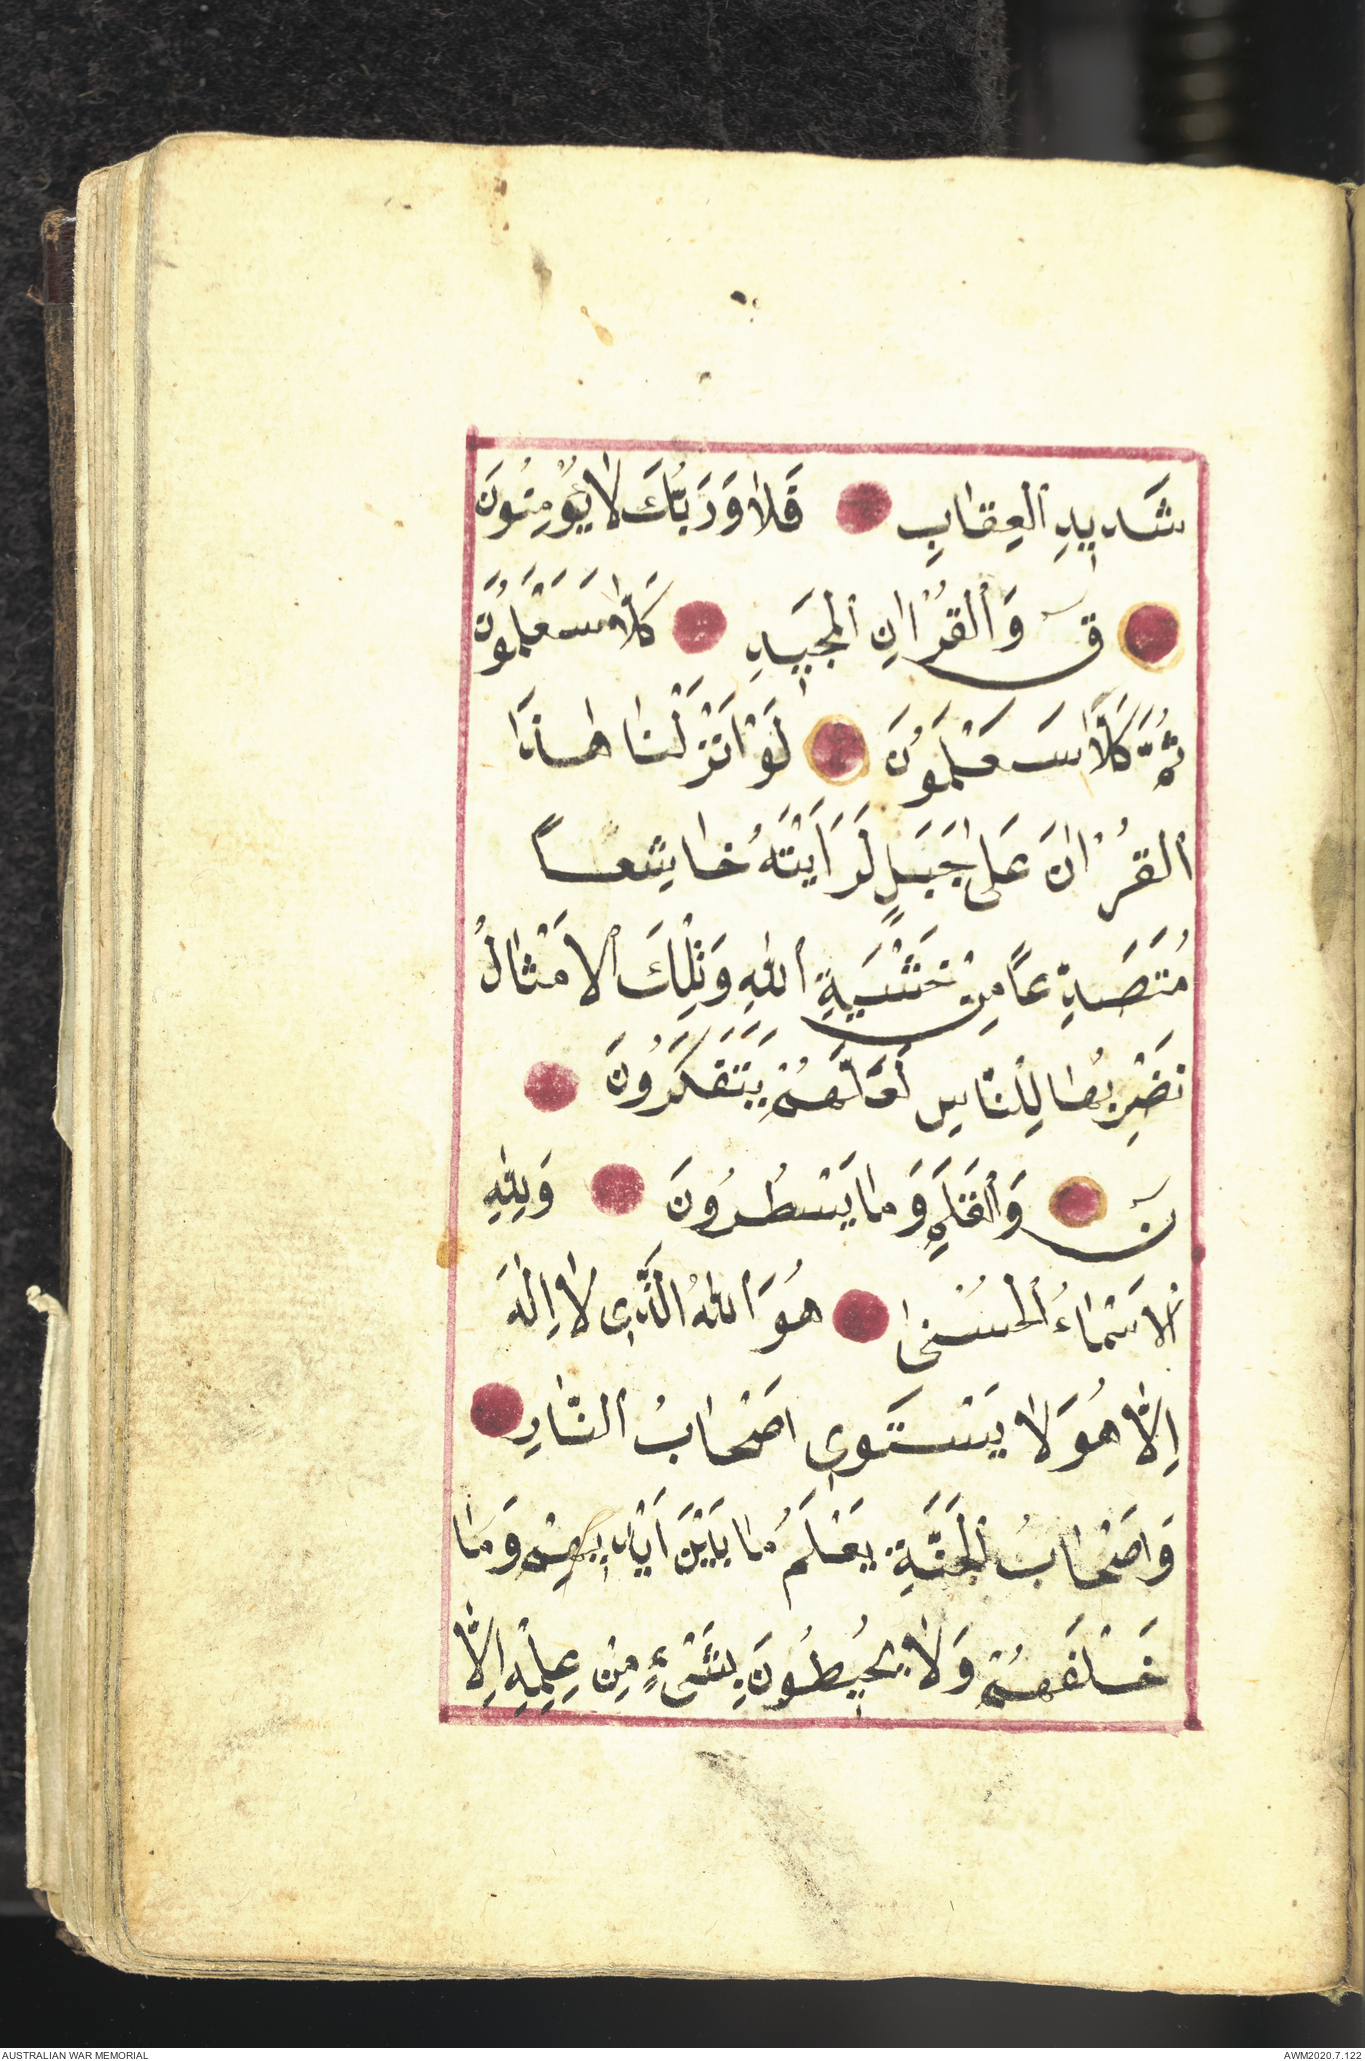 شَدِيدِ الْعِقَابِ فَلَا وَرَبُّكَ لَا يُؤْمِنُونَ
قۤ وَالْقُرْاٰنِ الْمَجِيدِ كَلَّا سَيَعْلَمُونَ
ثُمَّ كَلَّا سَيَعْلَمُونَ لَوْ اَنْزَلْنَا هٰذَا
الْقُرْاٰنَ عَلَى جَبَلٍ لَرَاَيْتَهُ خَاشِعًا
مُتَصَدِّعًا مِنْ خَشْيَةِ اللّٰهِ وَتِلْكَ الْاَمْثَالُ
نَضْرِبُهَا لِلنَّاسِ لَعَلَّهُمْ يَتَفَكَّرُونَ
نۤ وَالْقَلَمِ وَمَا يَسْطُرُونَ وَلِلّٰهِ
الْاَسْمَاءُ الْحُسْنٰى هُوَ اللّٰهُ الَّذِى لَا اِلٰهَ
اِلَّا هُوَ لَا يَسْتَوِى اَصْحَابُ النَّارِ
وَاَصْحَابُ الْجَنَّةِ يَعْلَمُ مَا بَيْنَ اَيْدِيهِمْ وَمَا
خَلْفَهُمْ وَلَا يُحِيطُونَ بِشَىْءٍ مِنْ عِلْمِهِ اِلَّا
AUSTRALIAN WAR MEMORIAL AWM2020.7.122